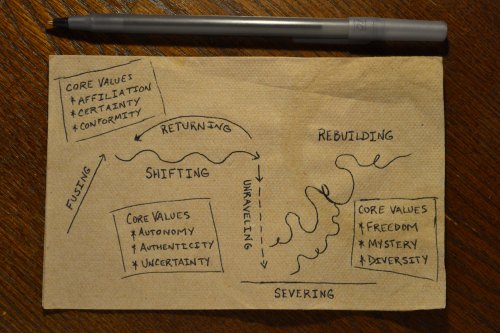 CORE VALUES
* AFFILIATION
* CERTAINTY
* CONFORMITY
RETURNING
REBUILDING
FUSING
SHIFTING
UNRAVELING
CORE VALUES
* AUTONOMY
* AUTHENTICITY
* UNCERTAINTY
CORE VALUES
* FREEDOM
* MYSTERY
* DIVERSITY
SEVERING